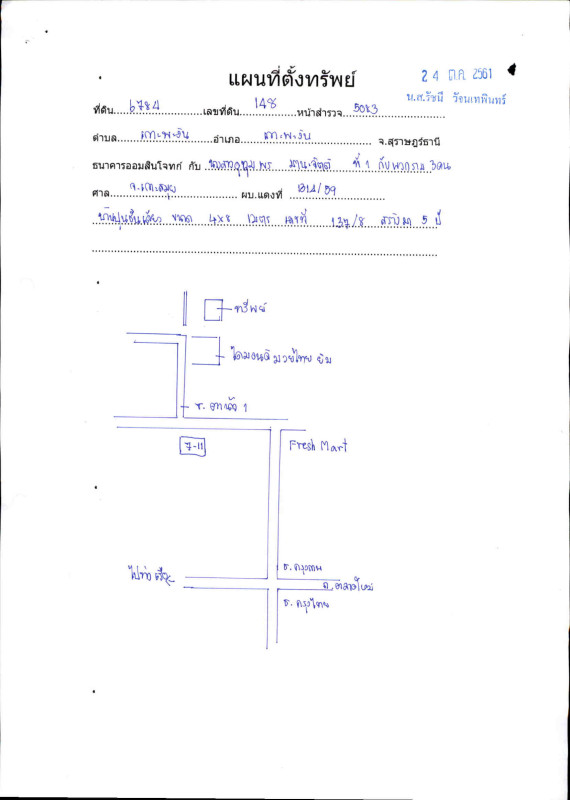 แผนที่ตั้งทรัพย์
24 ต.ค. 2561
น.ส.รัชนี
ที่ดิน 6784 เลขที่ดิน 148 หน้าสำรวจ 5083
ตำบล เกาะพะงัน อำเภอ เกาะพะงัน จ.สุราษฎร์ธานี
ธนาคารออมสินโจทก์ กับ ที่ 1 กับพวกรวม 3 คน
ศาล จ.เกาะสมุย ผบ.แดงที่ 1314/59
บ้านปูนชั้นเดียว ขนาด 4x8 เมตร เลขที่ 137/8 สร้างมา 5 ปี
ทรัพย์
ไดมอนด์ มวยไทย ยิม
7-11
Fresh Mart
ไปท่าเรือ
ธ. กรุงเทพ
ถ. ตลาดใหม่
ธ. กรุงไทย